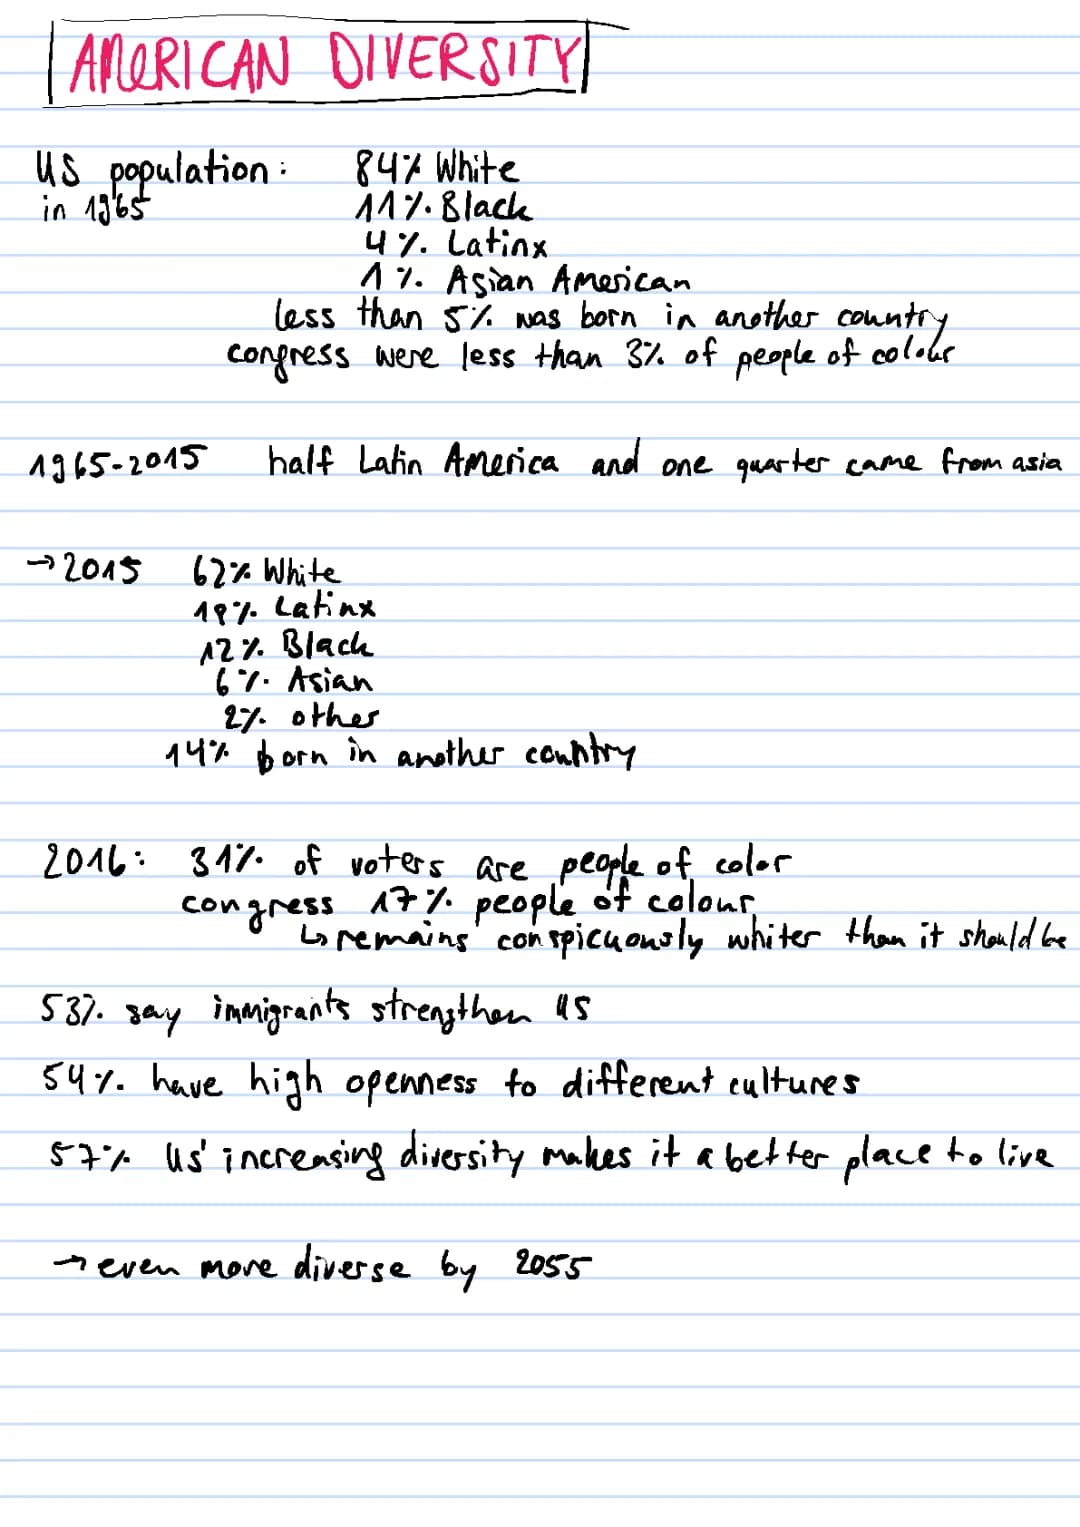 AMERICAN DIVERSITY
US population: 84% White
in 1965 11% Black
4% Latinx
1% Asian American
less than 5% was born in another country
congress were less than 3% of people of colour
1965-2015 half Latin America and one quarter came from asia
→2015 62% White
18% Latinx
12% Black
6% Asian
2% other
14% born in another country
2016: 31% of voters are people of color
congress 17% people of colour
↳ remains conspicuously whiter than it should be
53% say immigrants strengthen US
54% have high openness to different cultures
57% US' increasing diversity makes it a better place to live
→ even more diverse by 2055